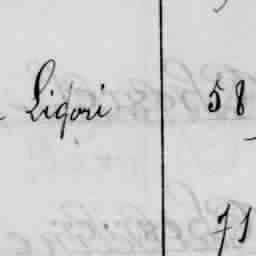 Ligori 58
71